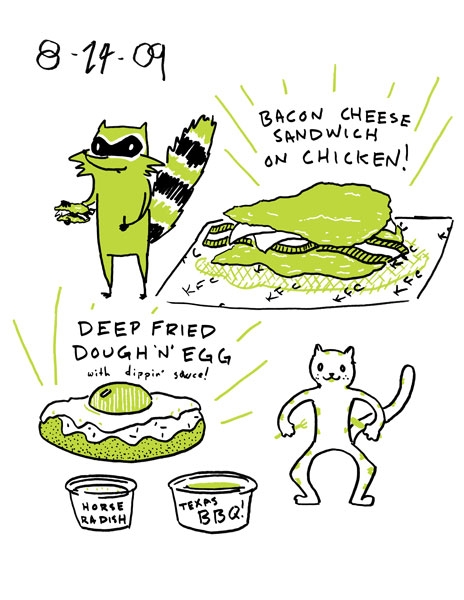 8-24-09
BACON CHEESE
SANDWICH
ON CHICKEN!
KFC KFC KFC KFC
DEEP FRIED
DOUGH 'N' EGG
with dippin' sauce!
HORSE
RADISH
TEXAS
BBQ!